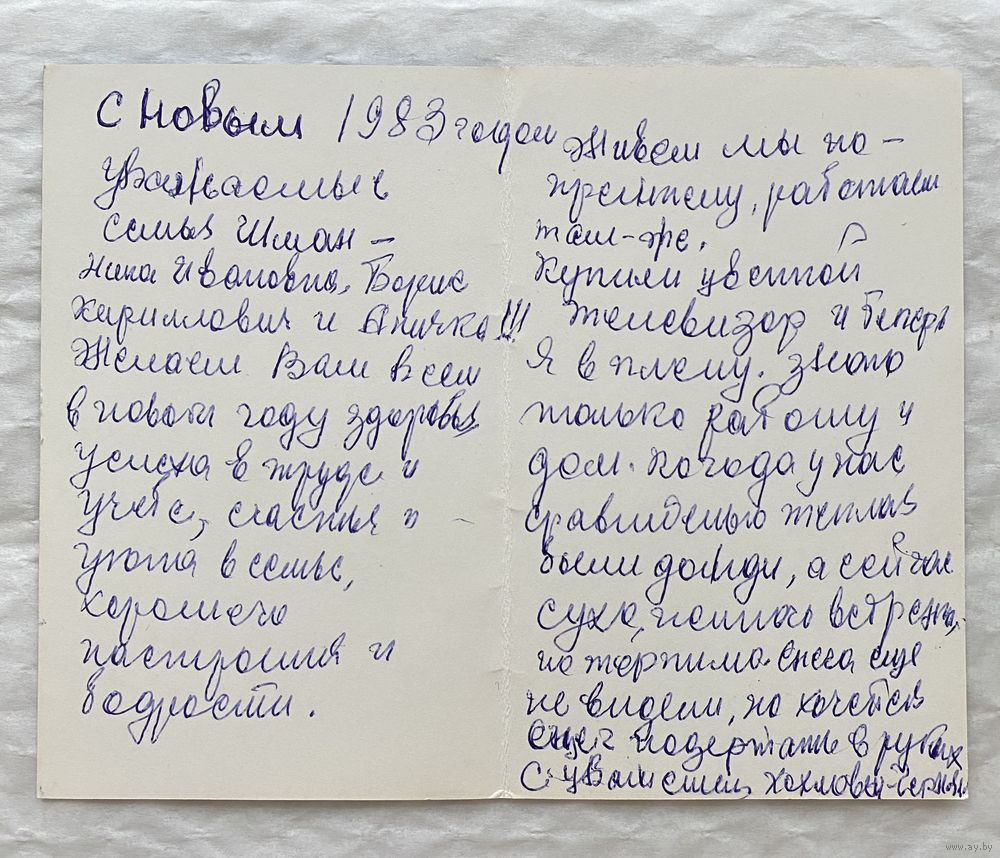 С Новым 1983 годом
Уважаемые
семья Шман –
Нина Ивановна, Борис
Кириллович и Анечка!!!
Желаем Вам всем
в новом году здоровья
успеха в труде и
учёбе, счастья и
уюта в семье,
хорошего
настроения и
бодрости.
Живем мы по-
прежнему, работаем
там-же.
Купили цветной
телевизор и теперь
я в плену. Знаю
только работу и
дом. Погода у нас
сравнительно теплая
были дожди, а сейчас
сухо, немного ветрено,
но терпимо. Снега еще
не видели, но хочется
снег подержать в руках
С уважением
www.ay.by